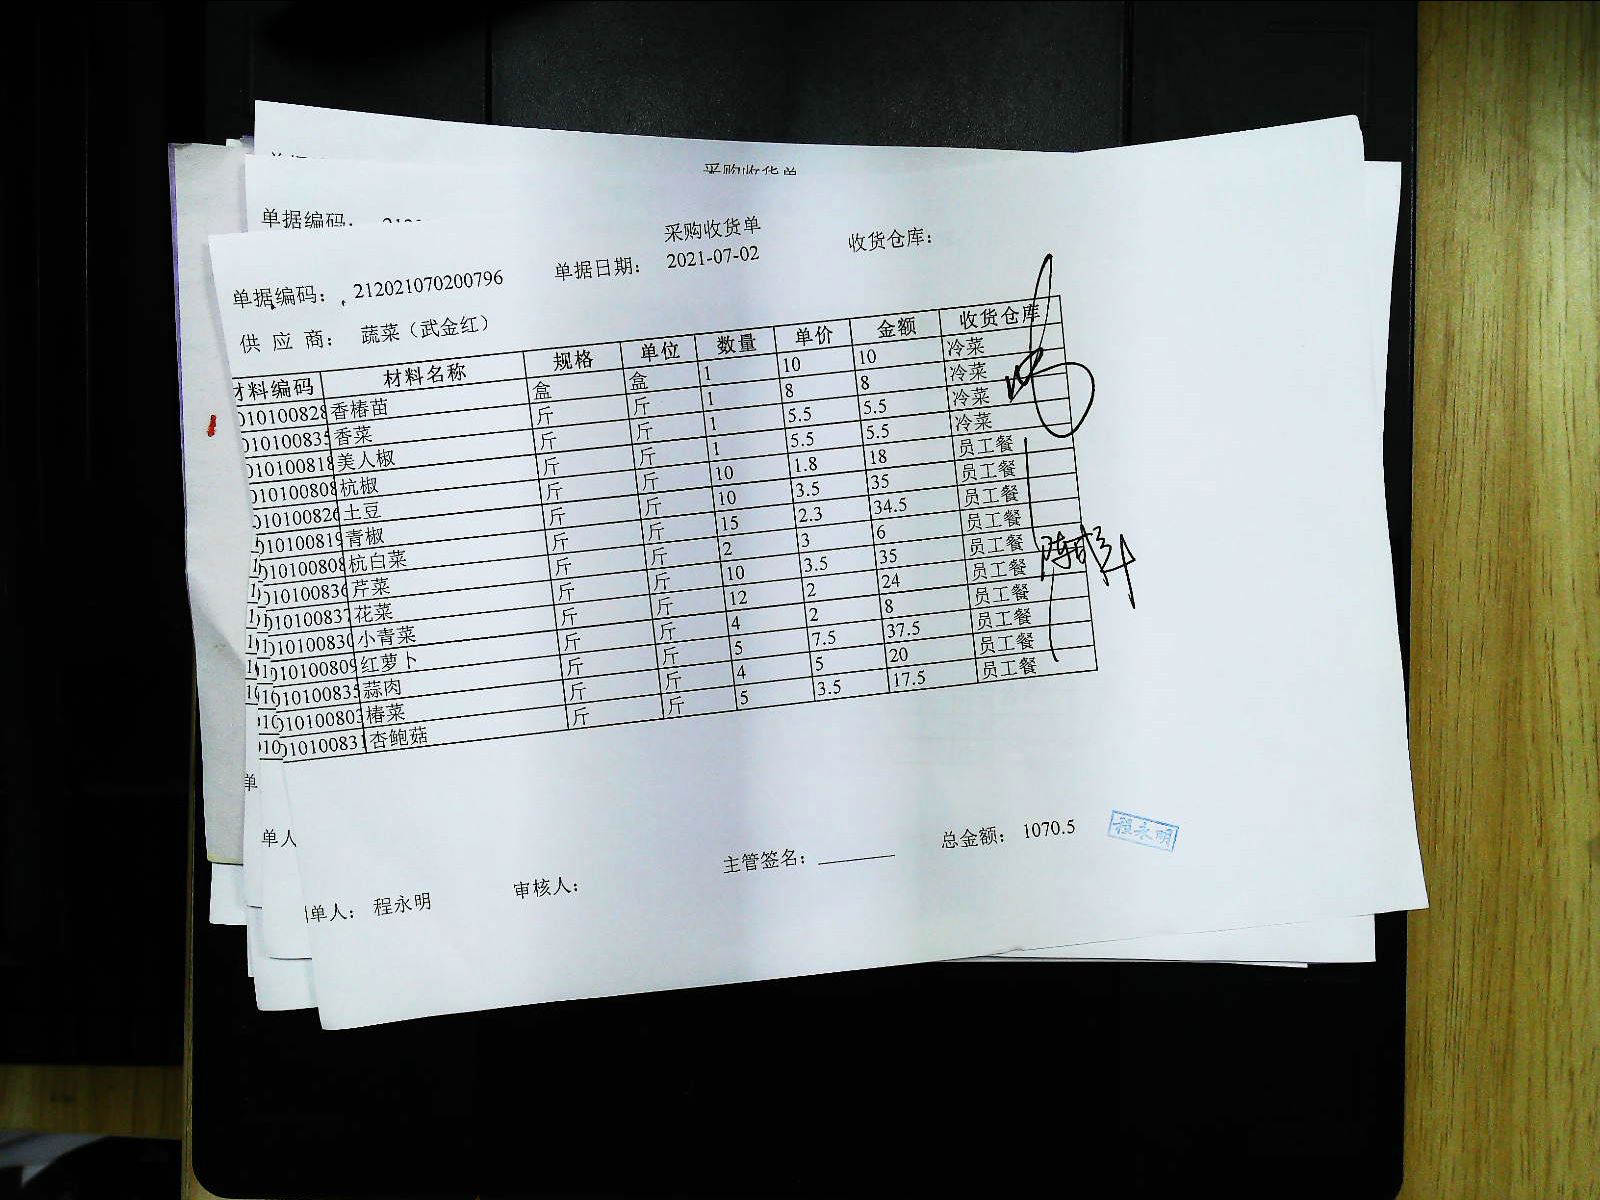 采购收货单
单据编码:
采购收货单
单据编码: 212021070200796 单据日期: 2021-07-02 收货仓库:
供 应 商: 蔬菜（武金红）
材料编码 材料名称 规格 单位 数量 单价 金额 收货仓库
010100828 香椿苗 盒 盒 1 10 10 冷菜
010100835 香菜 斤 斤 1 8 8 冷菜
010100818 美人椒 斤 斤 1 5.5 5.5 冷菜
010100808 杭椒 斤 斤 1 5.5 5.5 冷菜
010100826 土豆 斤 斤 10 1.8 18 员工餐
010100819 青椒 斤 斤 10 3.5 35 员工餐
010100808 杭白菜 斤 斤 15 2.3 34.5 员工餐
010100836 芹菜 斤 斤 2 3 6 员工餐
010100837 花菜 斤 斤 10 3.5 35 员工餐
010100830 小青菜 斤 斤 12 2 24 员工餐
010100809 红萝卜 斤 斤 4 2 8 员工餐
010100835 蒜肉 斤 斤 5 7.5 37.5 员工餐
010100803 椿菜 斤 斤 4 5 20 员工餐
010100831 杏鲍菇 斤 斤 5 3.5 17.5 员工餐
单
单人
制单人: 程永明 审核人: 主管签名: 总金额: 1070.5 程永明